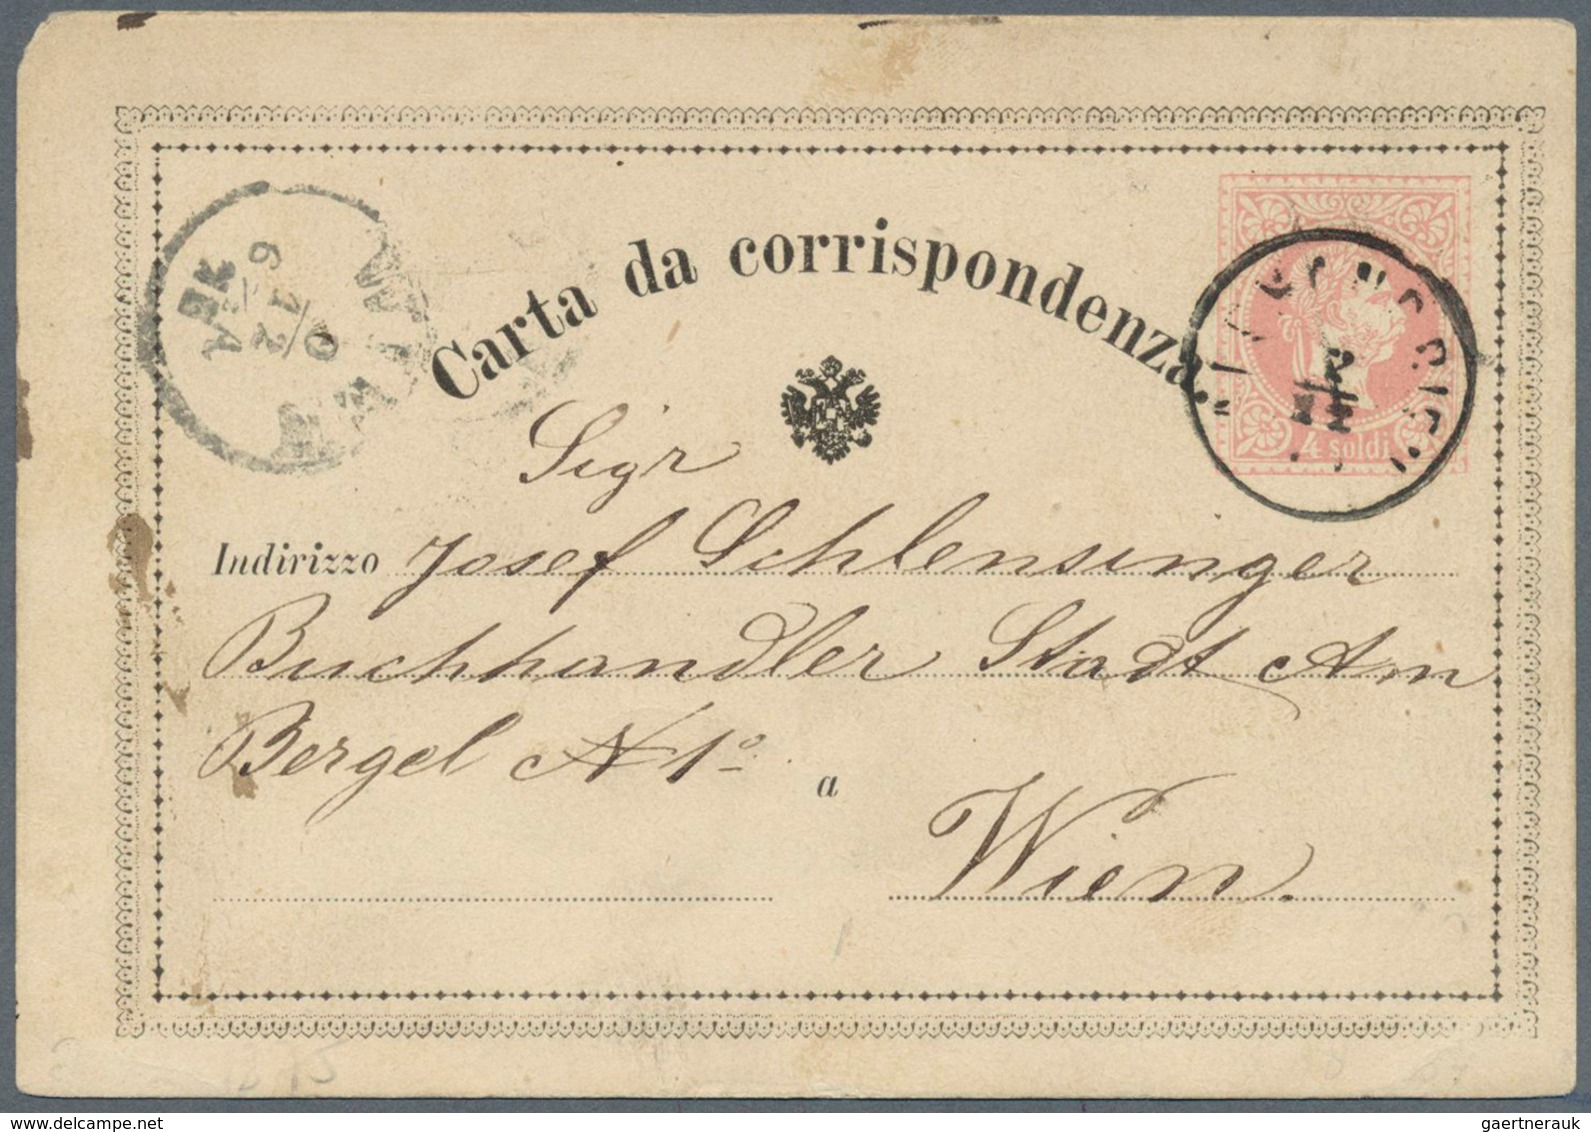 Carta da corrispondenza
4 soldi
WIEN
Sigr
Indirizzo Josef Schlensinger
Buchhandler Stadt Am
Bergel N 1º
a Wien.
gaertnerauk